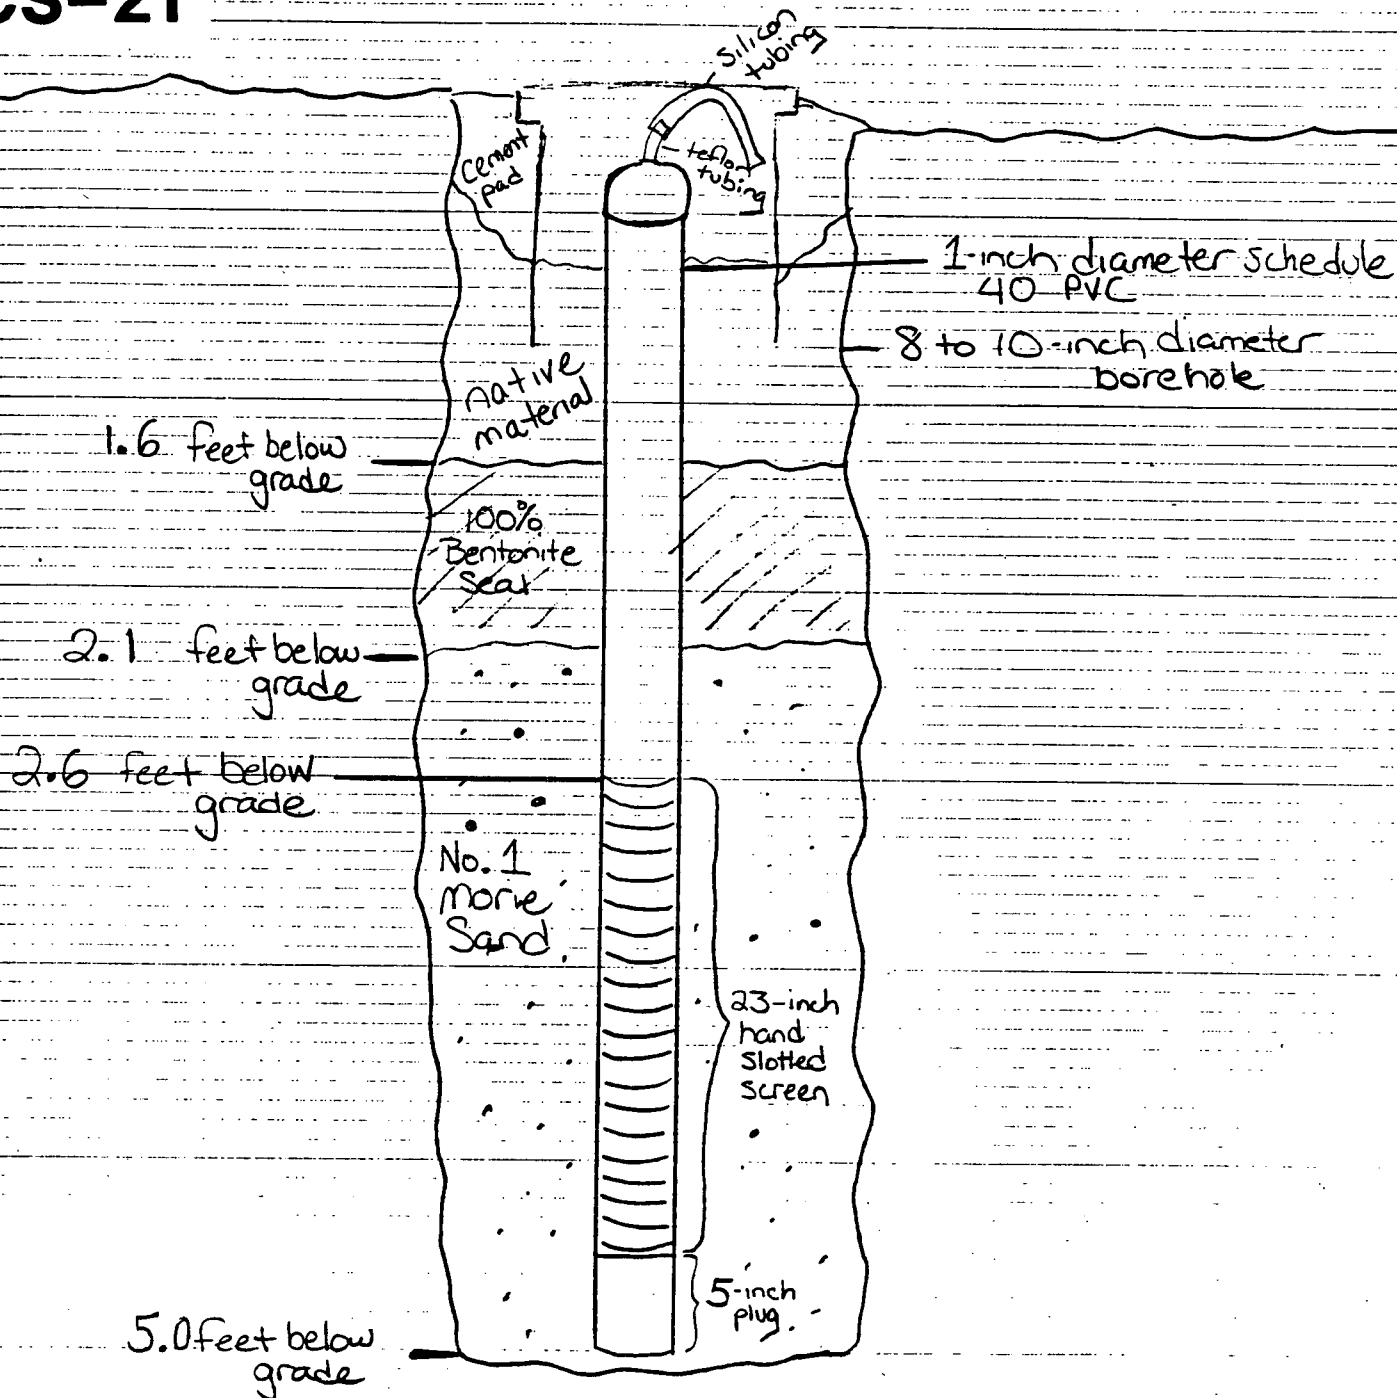 CS-21
silicon
tubing
teflon
tubing
Cement
pad
1-inch diameter schedule
40 PVC
8 to 10-inch diameter
borehole
native
material
1.6 feet below
grade
100%
Bentonite
Seal
2.1 feet below
grade
2.6 feet below
grade
No. 1
morie
Sand
23-inch
hand
slotted
screen
5-inch
plug.
5.0 feet below
grade